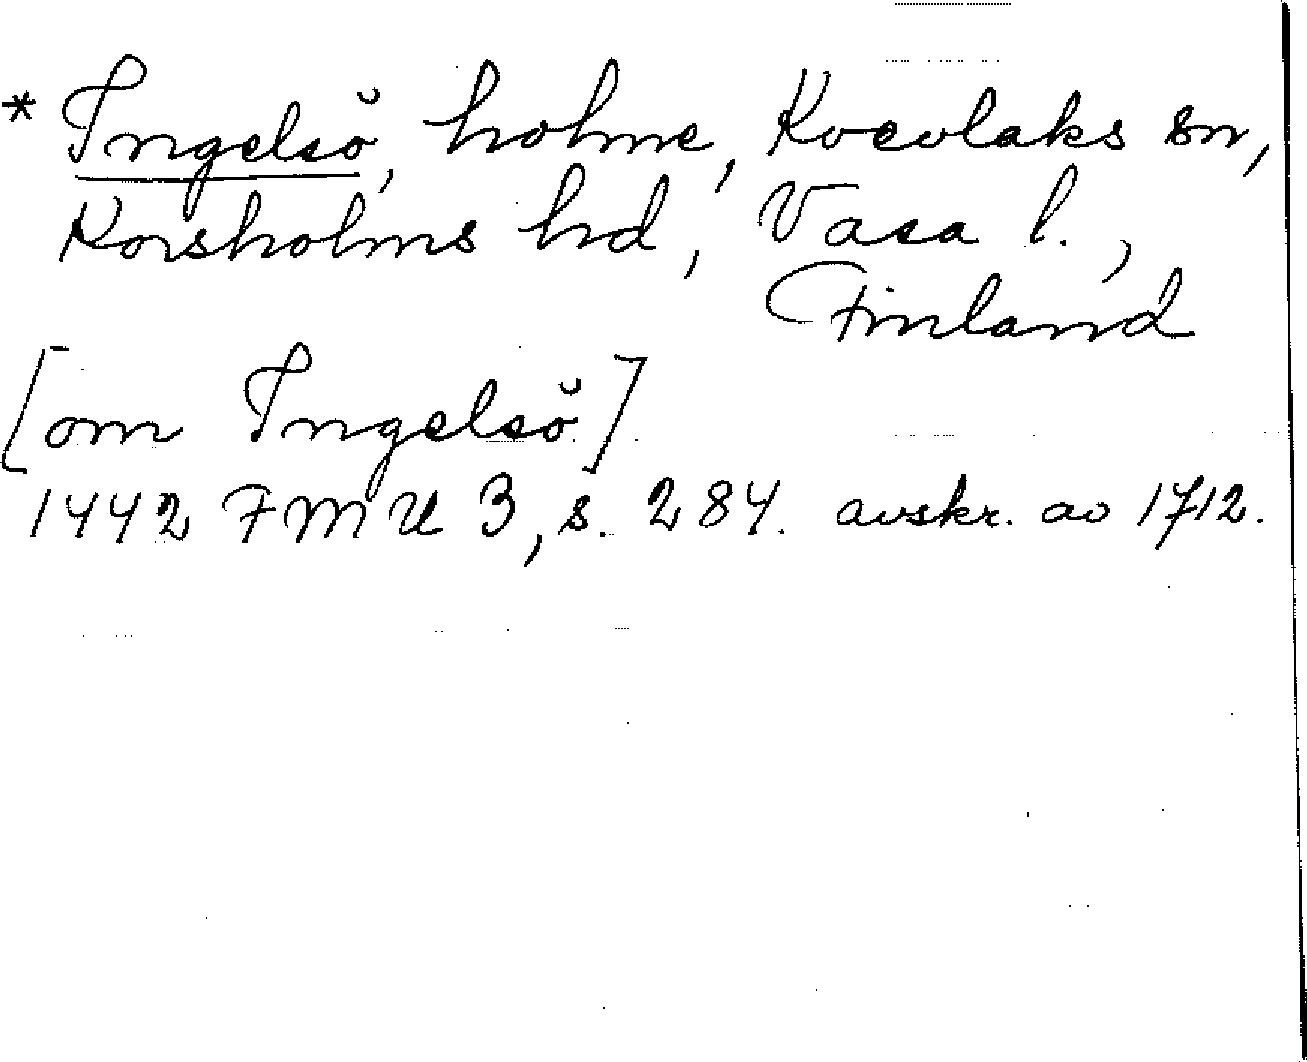 * Ingelsö, holme, Kvevlaks sn,
Korsholms hd, Vasa l.,
Finland
[om Ingelsö]
1442 FMU 3, s. 284. avskr. av 1712.